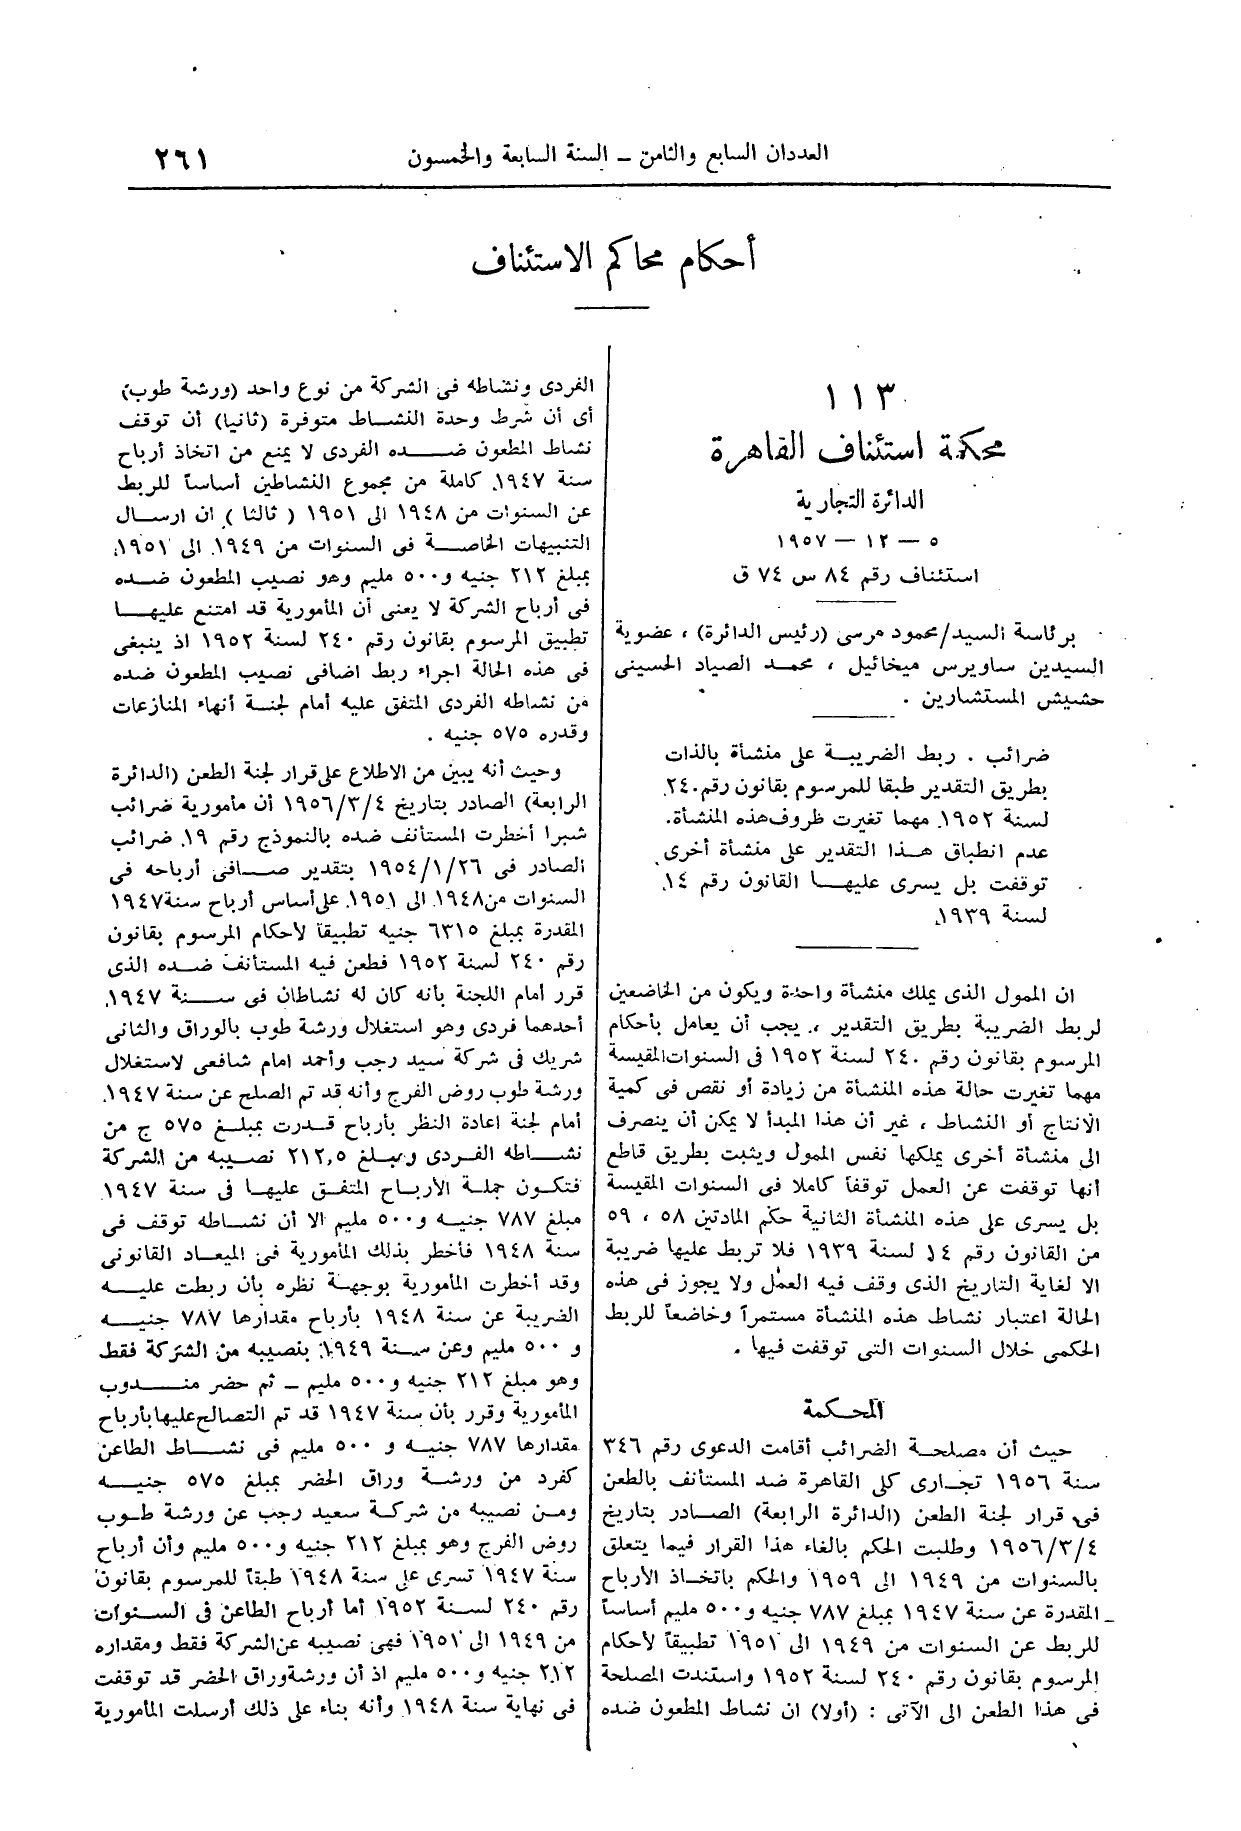 العددان السابع والثامن – السنة السابعة والخمسون
٢٦١
أحكام محاكم الاستئناف
١١٣
محكمة استئناف القاهرة
الدائرة التجارية
٥ – ١٢ – ١٩٥٧
استئناف رقم ٨٤ س ٧٤ ق
برئاسة السيد/محمود مرسى (رئيس الدائرة) ، عضوية
السيدين ساويرس ميخائيل ، محمد الصياد الحسينى
حشيش المستشارين .
ضرائب . ربط الضريبة على منشأة بالذات
بطريق التقدير طبقا للمرسوم بقانون رقم ٢٤٠
لسنة ١٩٥٢ مهما تغيرت ظروف هذه المنشأة.
عدم انطباق هذا التقدير على منشأة أخرى
توقفت بل يسرى عليها القانون رقم ١٤
لسنة ١٩٣٩
ان الممول الذى يملك منشأة واحدة ويكون من الخاضعين
لربط الضريبة بطريق التقدير ، يجب أن يعامل بأحكام
المرسوم بقانون رقم ٢٤٠ لسنة ١٩٥٢ فى السنوات المقيسة
مهما تغيرت حالة هذه المنشأة من زيادة أو نقص فى كمية
الانتاج أو النشاط ، غير أن هذا المبدأ لا يمكن أن ينصرف
الى منشأة أخرى يملكها نفس الممول ويثبت بطريق قاطع
أنها توقفت عن العمل توقفاً كاملا فى السنوات المقيسة
بل يسرى على هذه المنشأة الثانية حكم المادتين ٥٨ ، ٥٩
من القانون رقم ١٤ لسنة ١٩٣٩ فلا تربط عليها ضريبة
الا لغاية التاريخ الذى وقف فيه العمل ولا يجوز فى هذه
الحالة اعتبار نشاط هذه المنشأة مستمراً وخاضعاً للربط
الحكمى خلال السنوات التى توقفت فيها .
المحكمة
حيث أن مصلحة الضرائب أقامت الدعوى رقم ٣٤٦
سنة ١٩٥٦ تجارى كلى القاهرة ضد المستأنف بالطعن
فى قرار لجنة الطعن (الدائرة الرابعة) الصادر بتاريخ
١٩٥٦/٣/٤ وطلبت الحكم بالغاء هذا القرار فيما يتعلق
بالسنوات من ١٩٤٩ الى ١٩٥٩ والحكم باتخاذ الأرباح
المقدرة عن سنة ١٩٤٧ بمبلغ ٧٨٧ جنيه و٥٠٠ مليم أساساً
للربط عن السنوات من ١٩٤٩ الى ١٩٥١ تطبيقاً لأحكام
المرسوم بقانون رقم ٢٤٠ لسنة ١٩٥٢ واستندت المصلحة
فى هذا الطعن الى الآتى : (أولا) ان نشاط المطعون ضده
الفردى ونشاطه فى الشركة من نوع واحد (ورشة طوب)
أى أن شرط وحدة النشاط متوفرة (ثانيا) أن توقف
نشاط المطعون ضده الفردى لا يمنع من اتخاذ أرباح
سنة ١٩٤٧ كاملة من مجموع النشاطين أساساً للربط
عن السنوات من ١٩٤٨ الى ١٩٥١ ( ثالثا ) ان ارسال
التنبيهات الخاصة فى السنوات من ١٩٤٩ الى ١٩٥١
بمبلغ ٢١٢ جنيه و٥٠٠ مليم وهو نصيب المطعون ضده
فى أرباح الشركة لا يعنى أن المأمورية قد امتنع عليها
تطبيق المرسوم بقانون رقم ٢٤٠ لسنة ١٩٥٢ اذ ينبغى
فى هذه الحالة اجراء ربط اضافى نصيب المطعون ضده
من نشاطه الفردى المتفق عليه أمام لجنة أنهاء المنازعات
وقدره ٥٧٥ جنيه .
وحيث أنه يبين من الاطلاع على قرار لجنة الطعن (الدائرة
الرابعة) الصادر بتاريخ ١٩٥٦/٣/٤ أن مأمورية ضرائب
شبرا أخطرت المستأنف ضده بالنموذج رقم ١٩ ضرائب
الصادر فى ١٩٥٤/١/٢٦ بتقدير صافى أرباحه فى
السنوات من ١٩٤٨ الى ١٩٥١ على أساس أرباح سنة ١٩٤٧
المقدرة بمبلغ ٦٣١٥ جنيه تطبيقاً لأحكام المرسوم بقانون
رقم ٢٤٠ لسنة ١٩٥٢ فطعن فيه المستأنف ضده الذى
قرر أمام اللجنة بأنه كان له نشاطان فى سنة ١٩٤٧
أحدهما فردى وهو استغلال ورشة طوب بالوراق والثانى
شريك فى شركة سيد رجب وأحمد امام شافعى لاستغلال
ورشة طوب روض الفرج وأنه قد تم الصلح عن سنة ١٩٤٧
أمام لجنة اعادة النظر بأرباح قدرت بمبلغ ٥٧٥ ج من
نشاطه الفردى وبلغ ٢١٢,٥ نصيبه من الشركة
فتكون جملة الأرباح المتفق عليها فى سنة ١٩٤٧
مبلغ ٧٨٧ جنيه و٥٠٠ مليم الا أن نشاطه توقف فى
سنة ١٩٤٨ فأخطر بذلك المأمورية فى الميعاد القانونى
وقد أخطرت المأمورية بوجهة نظره بأن ربطت عليه
الضريبة عن سنة ١٩٤٨ بأرباح مقدارها ٧٨٧ جنيه
و ٥٠٠ مليم وعن سنة ١٩٤٩ بنصيبه من الشركة فقط
وهو مبلغ ٢١٢ جنيه و٥٠٠ مليم – ثم حضر مندوب
المأمورية وقرر بأن سنة ١٩٤٧ قد تم التصالح عليها بأرباح
مقدارها ٧٨٧ جنيه و ٥٠٠ مليم فى نشاط الطاعن
كفرد من ورشة وراق الخضر بمبلغ ٥٧٥ جنيه
ومن نصيبه من شركة سعيد رجب عن ورشة طوب
روض الفرج وهو بمبلغ ٢١٢ جنيه و٥٠٠ مليم وأن أرباح
سنة ١٩٤٧ تسرى على سنة ١٩٤٨ طبقاً للمرسوم بقانون
رقم ٢٤٠ لسنة ١٩٥٢ أما أرباح الطاعن فى السنوات
من ١٩٤٩ الى ١٩٥١ فهى نصيبه عن الشركة فقط ومقداره
٢١٢ جنيه و٥٠٠ مليم اذ أن ورشة وراق الحضر قد توقفت
فى نهاية سنة ١٩٤٨ وأنه بناء على ذلك أرسلت المأمورية